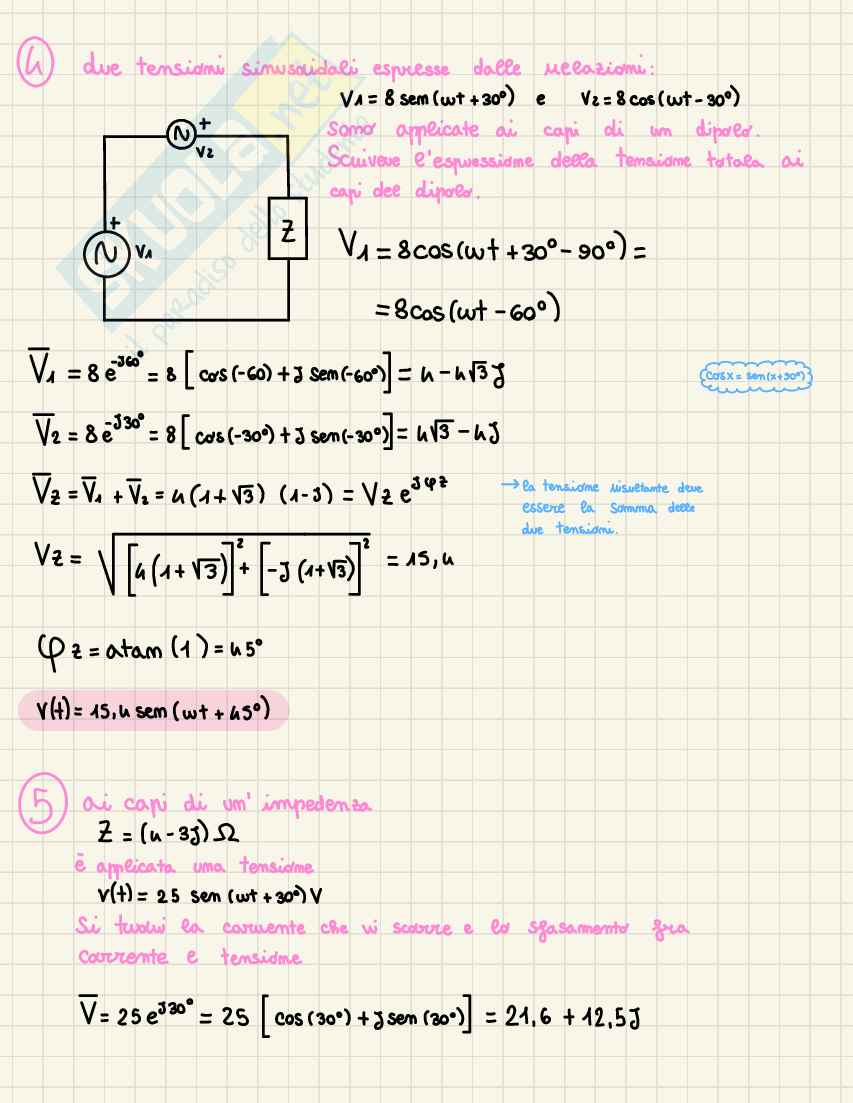 4 due tensioni sinusoidali espresse dalle relazioni:
V1 = 8 sen (ωt + 30°) e V2 = 8 cos (ωt - 30°)
sono applicate ai capi di un dipolo.
Scrivere l'espressione della tensione totala ai
capi del dipolo.
+
V2
+
V1
Z
V1 = 8 cos (ωt + 30° - 90°) =
= 8 cos (ωt - 60°)
V̅1 = 8 e^-J60° = 8 [cos (-60) + J sen (-60°)] = 4 - 4√3 J
cos x = sen (x + 90°)
V̅2 = 8 e^-J30° = 8 [cos (-30°) + J sen (-30°)] = 4√3 - 4J
V̅z = V̅1 + V̅2 = 4 (1 + √3) (1 - J) = Vz e^Jφz
→ la tensione risultante deve
essere la somma delle
due tensioni.
Vz = √([4 (1 + √3)]² + [-J (1 + √3)]²) = 15,4
φz = atan (1) = 45°
V(t) = 15,4 sen (ωt + 45°)
5 ai capi di un' impedenza
Z = (4 - 3J) Ω
è applicata una tensione
V(t) = 25 sen (ωt + 30°) V
Si trovi la corrente che vi scorre e lo sfasamento fra
corrente e tensione
V̅ = 25 e^J30° = 25 [cos (30°) + J sen (30°)] = 21,6 + 12,5J
SKUOLA.net
il paradiso dello studente